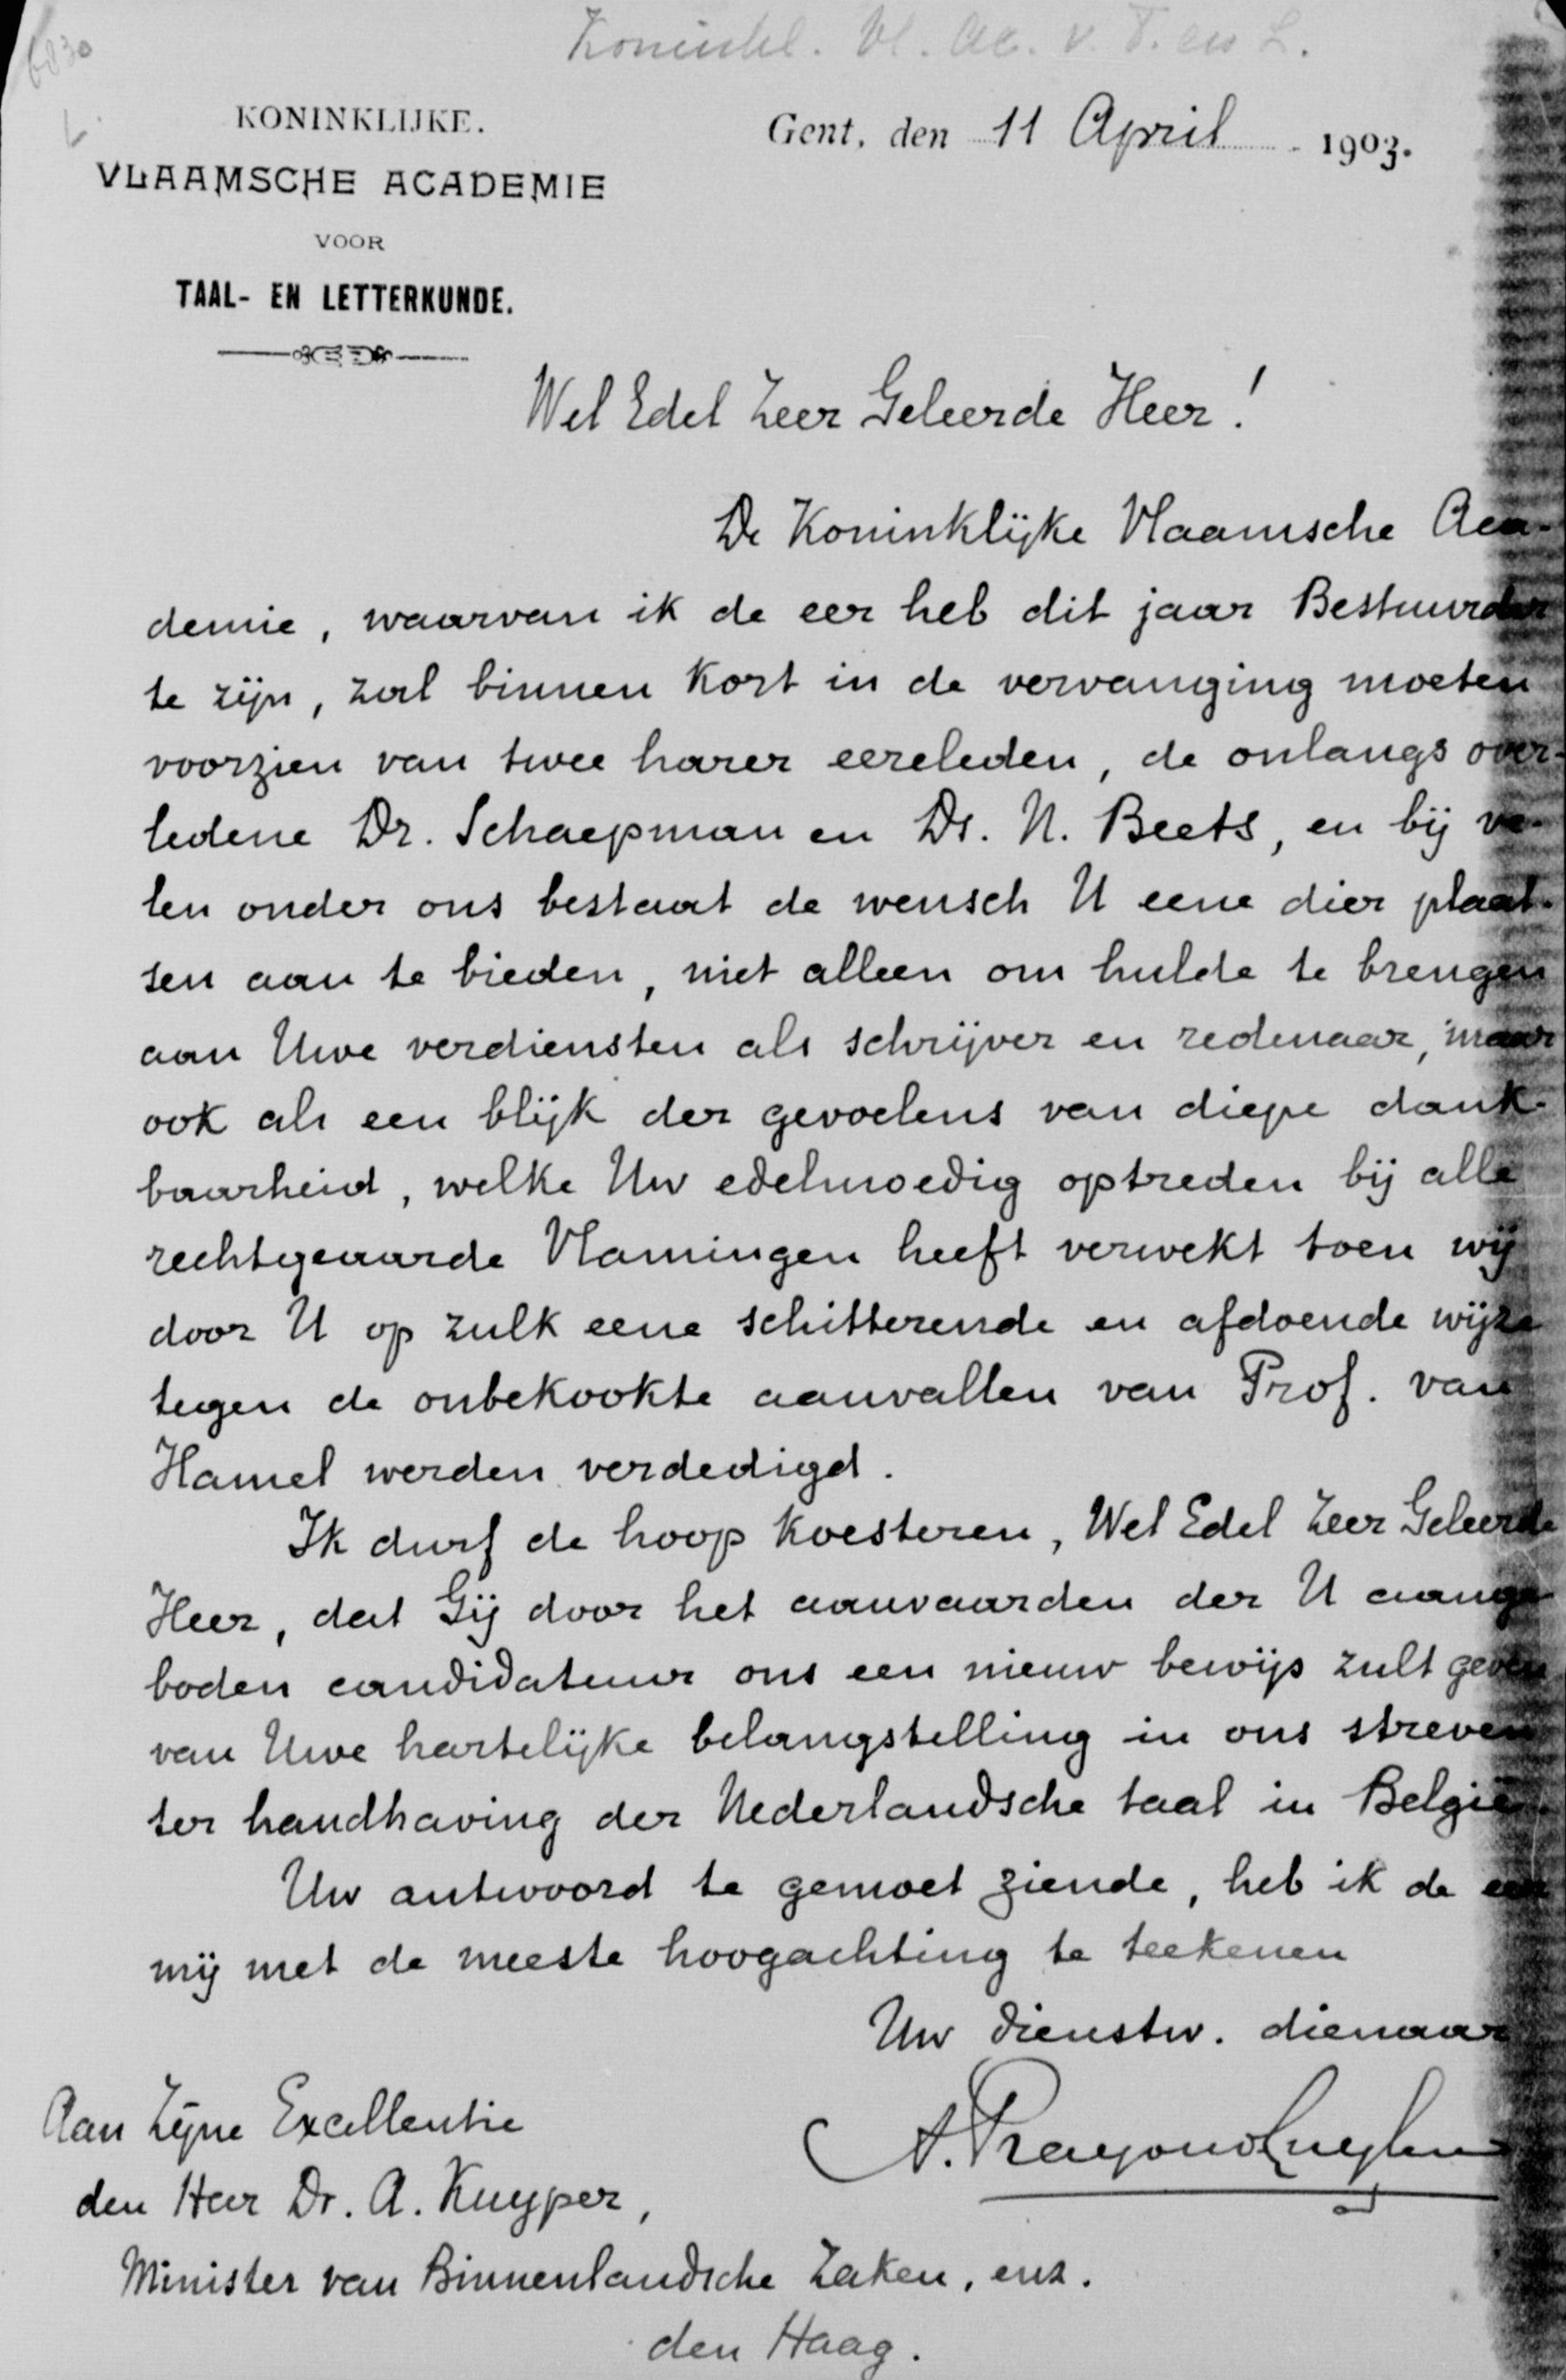 6830
Koninkl. Vl. Ac. v. T. en L.
L.
KONINKLIJKE.
VLAAMSCHE ACADEMIE
VOOR
TAAL- EN LETTERKUNDE.
Gent, den 11 April 1903.
Wel Edel Zeer Geleerde Heer!
De Koninklijke Vlaamsche Aca-
demie, waarvan ik de eer heb dit jaar Bestuurder
te zijn, zal binnen kort in de vervanging moeten
voorzien van twee harer eereleden, de onlangs over-
ledene Dr. Schaepman en Ds. N. Beets, en bij ve-
len onder ons bestaat de wensch U eene dier plaat-
sen aan te bieden, niet alleen om hulde te brengen
aan Uwe verdiensten als schrijver en redenaar, maar
ook als een blijk der gevoelens van diepe dank-
baarheid, welke Uw edelmoedig optreden bij alle
rechtgeaarde Vlamingen heeft verwekt toen wij
door U op zulk eene schitterende en afdoende wijze
tegen de onbekookte aanvallen van Prof. van
Hamel werden verdedigd.
Ik durf de hoop koesteren, Wel Edel Zeer Geleerde
Heer, dat Gij door het aanvaarden der U aange-
boden candidatuur ons een nieuw bewijs zult geven
van Uwe hartelijke belangstelling in ons streven
ter handhaving der Nederlandsche taal in België.
Uw antwoord te gemoet ziende, heb ik de eer
mij met de meeste hoogachting te teekenen
Uw dienstw. dienaar
A. Prayon van Zuylen
Aan Zijne Excellentie
den Heer Dr. A. Kuyper,
Minister van Binnenlandsche Zaken, enz.
den Haag.